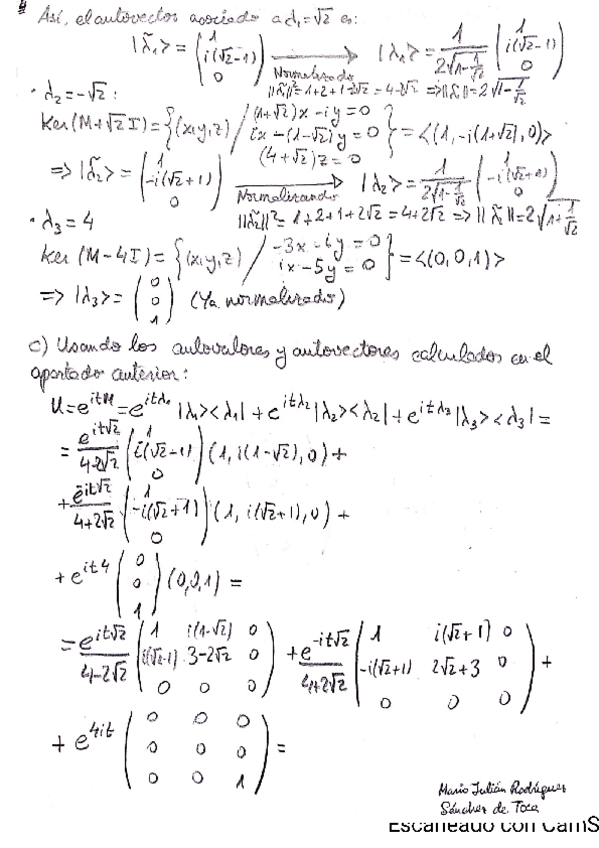 Así, el autovector asociado a λ₁=√2 es:
|λ̃₁> = (1, i(√2-1), 0) → |λ₁> = 1/(2√(1-1/√2)) (1, i(√2-1), 0)
Normalizado
||λ̃₁||²=1+2+1-2√2=4-2√2 => ||λ̃₁||=2√(1-1/√2)
• λ₂=-√2:
Ker(M+√2I)={(x,y,z) / (1+√2)x-iy=0, ix-(1-√2)y=0, (4+√2)z=0}=<(1,-i(1+√2),0)>
=> |λ̃₂> = (1, -i(√2+1), 0) → |λ₂> = 1/(2√(1+1/√2)) (1, -i(√2+1), 0)
Normalizando
||λ̃₂||²=1+2+1+2√2=4+2√2 => ||λ̃₂||=2√(1+1/√2)
• λ₃=4
Ker(M-4I)={(x,y,z) / -3x-iy=0, ix-5y=0}=<(0,0,1)>
=> |λ₃> = (0, 0, 1) (Ya normalizado)
c) Usando los autovalores y autovectores calculados en el
apartado anterior:
U=e^{itM}=e^{itλ₁}|λ₁><λ₁|+e^{itλ₂}|λ₂><λ₂|+e^{itλ₃}|λ₃><λ₃|=
= e^{it√2}/(4-2√2) (1, i(√2-1), 0) (1, i(1-√2), 0)+
+ e^{-it√2}/(4+2√2) (1, -i(√2+1), 0) (1, i(√2+1), 0)+
+ e^{it4} (0, 0, 1) (0,0,1) =
= e^{it√2}/(4-2√2) (1 i(1-√2) 0; i(√2-1) 3-2√2 0; 0 0 0) + e^{-it√2}/(4+2√2) (1 i(√2+1) 0; -i(√2+1) 2√2+3 0; 0 0 0) +
+ e^{4it} (0 0 0; 0 0 0; 0 0 1) =
Mario Julián Rodríguez
Sánchez de Toca
Escaneado con CamS